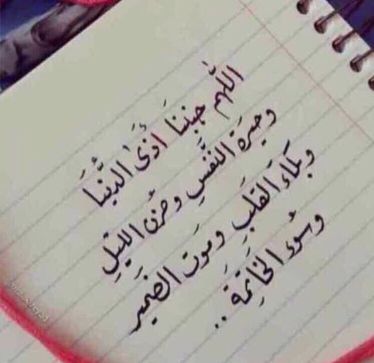 اللهم جنبنا أذى الدُّنيا
وحيرة النَّفسِ وحُزن الليل
وبكاء القلب وموت الضمير
وسُوء الخَاتِمَة ..